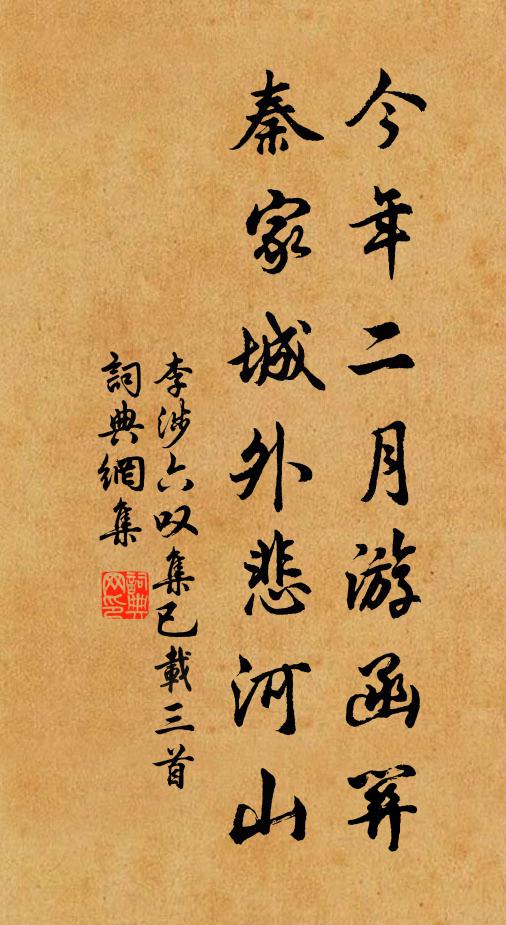 今年二月游函関
秦家城外悲河山
李涉六叹集已載三首
詞典網集
詞典網印